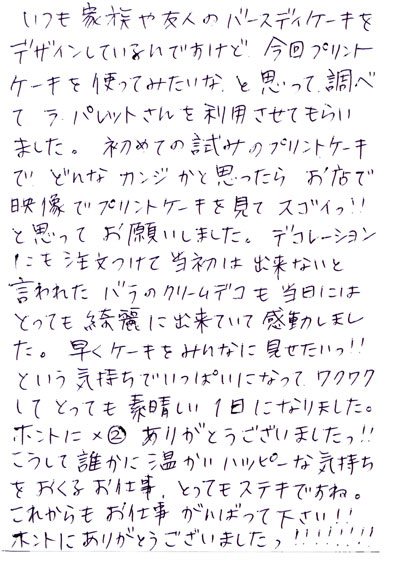 いつも家族や友人のバースディケーキを
デザインしているんですけど、今回プリント
ケーキを使ってみたいな、と思って、調べ
て ラ・パレットさんを利用させてもらい
ました。 初めての試みのプリントケーキ
で、どんなカンジかと思ったら お店で
映像でプリントケーキを見て スゴイっ!!
と思って お願いしました。 デコレーション
にも注文つけて 当初は出来ないと
言われた バラのクリームデコも 当日には
とっても 綺麗に出来ていて 感動しまし
た。 早くケーキをみんなに見せたいっ!!
という気持ちでいっぱいになって、ワクワク
して とっても 素晴しい 1日になりました。
ホントに×② ありがとうございましたっ!!
こうして誰かに温かいハッピーな気持ち
を おくるお仕事、とってもステキですね。
これからも お仕事 がんばって下さい!!
ホントにありがとうございましたっ!!!!!!!!